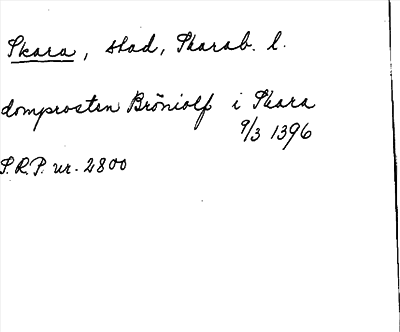 Skara, stad, Skarab. l.
domprosten Bröniolf i Skara
9/3 1396
S.R.P. nr. 2800